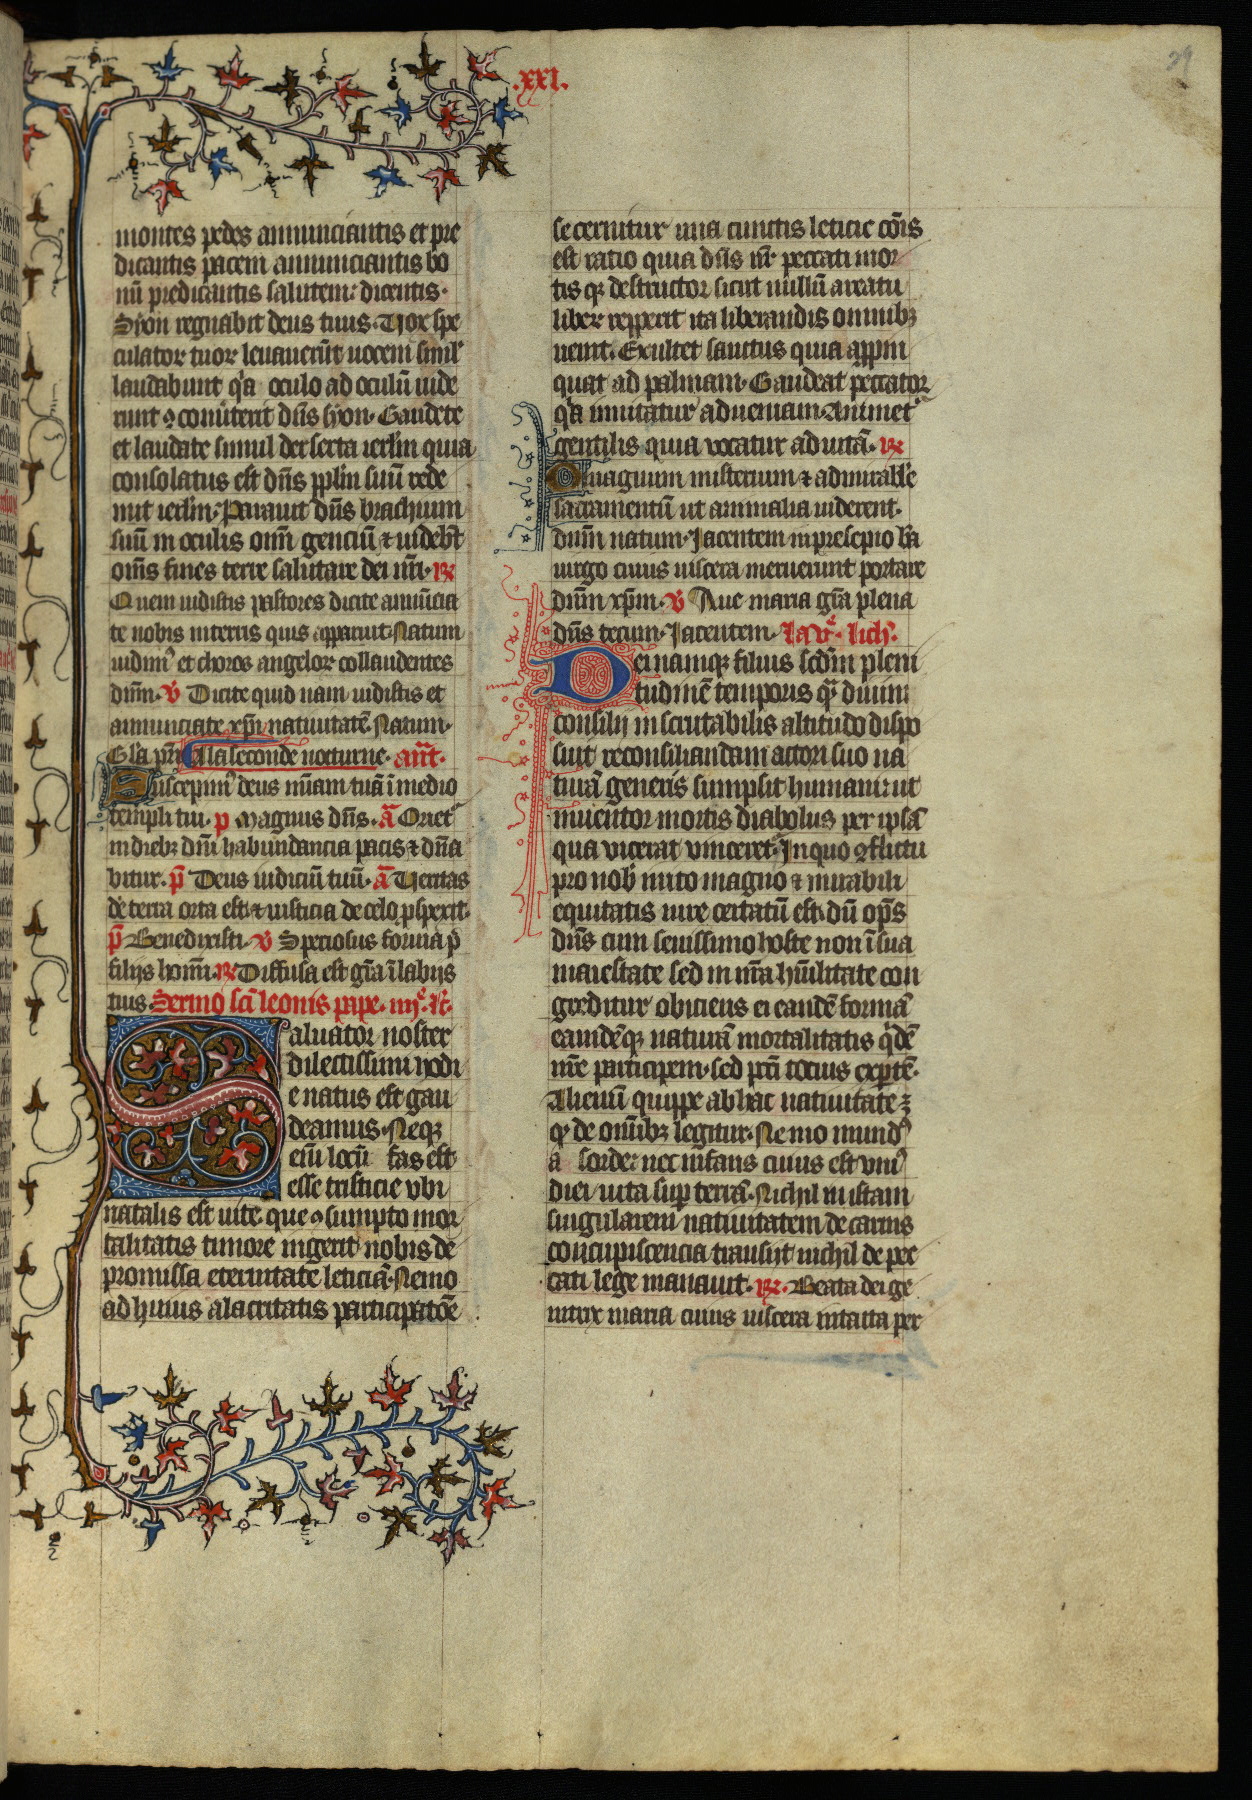 29
.xxi.
montes pedes annunciantis et pre
dicantis pacem annunciantis bo
nū predicantis salutem: dicentis.
Syon regnabit deus tuus. Uox spe
culator tuor leuauerūt uocem simłˀ
laudabunt qͣa oculo ad oculū uide
runt ꝯ conūterit dn̄s syon. Gaudete
et laudate simul deserta ierłm quia
consolatus est dn̄s pplm̄ suū rede
mit ierłm. Parauit dn̄s brachium
suū in oculis om̄ genciū ⁊ uideb̄t
om̄s fines terre salutare dei nr̄i. ℞
Quem uidistis pastores dicite annūcia
te nobis in terris quis apparuit. Natum
uidimꝰ et choros angelor collaudentes
dn̄m. ℣ Dicite quid nam uidistis et
annunciate xp̄i natiuitatē. Natum.
Gła pr̄i A la seconde nocturne. ant̄.
Suscepimꝰ deus mīam tuā ī medio
templi tui. p̄ Magnus dn̄s. ā Orietˀ
in diebꝫ dn̄i habundancia pacis ⁊ dn̄a
bitur. p̄ Deus iudiciū tuū. ā Ueritas
de terra orta est ⁊ iusticia de celo ꝓspexit.
p̄ Benedixisti. ℣ Speciosus forma p̄
filijs homī. ℞ Diffusa est gr̄a ī labijs
tuis. Sermo sc̄i leonis pape. iiijͤ. łc̄.
Saluator noster
dilectissimi hodi
e natus est gau
deamus. Neqꝫ
eīn locū fas est
esse tristicie ubi
natalis est uite. que ꝯsumpto mor
talitatis timore ingerit nobis de
promissa eternitate leticiā. Nemo
ad huius alacritatis participatōe
secernitur una cunctis leticie cōis
est ratio quia dn̄s nr̄ peccati mor
tis qꝫ destructor sicut nullū a reatu
liber repperit ita liberandis omnibꝫ
uenit. Exultet sanctus quia appin
quat ad palmam. Gaudeat peccator
qͣa inuitatur ad ueniam. Animetˀ
gentilis quia vocatur ad uitā. ℞
O magnum misterium ⁊ admirabile
sacramentū ut animalia uiderent.
dn̄m natum. Iacentem in presepio b̄a
uirgo cuius uiscera meruerunt portare
dn̄m xp̄m. ℣ Aue maria gr̄a plena
dn̄s tecum. Iacentem. La vͤ. lich.
Dei namqꝫ filius scdm̄ pleni
tudinē temporis qͣ diuini
consilij inscrutabilis altitudo dispo
suit reconsiliandam actori suo na
turā generis sumpsit humani: ut
inuentor mortis diabolus per ipsā
qua vicerat vinceretˀ. In quo ꝯflictu
pro nob̄ inito magno ⁊ mirabili
equitatis iure certatū est. dū op̄s
dn̄s cum seuissimo hoste non ī sua
maiestate sed in nr̄a hūilitate con
greditur obiciens ei eandē formā
eamdēqꝫ naturā mortalitatis qͥdē
nr̄e participem. sed pct̄i tocius exptē.
Alienū quippe ab hac natiuitate ē
qͩ de om̄ibꝫ legitur. Nemo mundꝰ
a sorde: nec infans cuius est vniꝰ
diei uita sup terrā. Nichil in istam
singularem natiuitatem de carnis
concupiscencia transijt nichil de pec
cati lege manauit. ℞. Beata dei ge
nitrix maria cuius uiscera intacta per